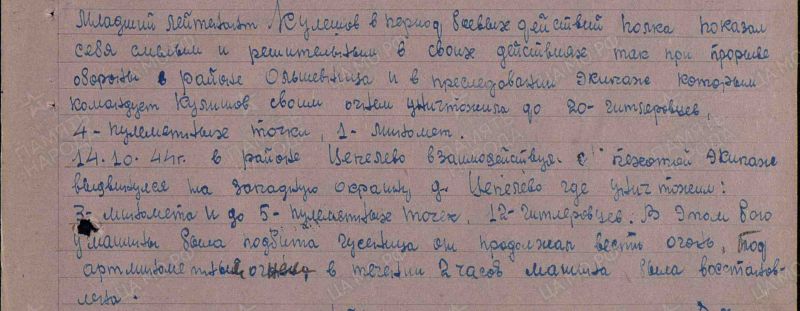 Младший лейтенант Кулешов в период боевых действий полка показал
себя смелым и решительным в своих действиях так при прорыве
обороны в районе Ольшевница и в преследовании экипаж которым
командует Кулишов своим огнем уничтожила до 20-гитлеровцев,
4-пулеметных точки, 1-миномет.
14.10.44г. в районе Цепелево взаимодействуя с пехотой экипаж
выдвинулся на западную окраину д. Цепелево где уничтожил:
3-миномета и до 5-пулеметных точек, 12-гитлеровцев. В этом бою
у машины была подбита гусеница он продолжал весть огонь, под
артминометным огнем, в течении 2 часов машина была восстанов-
лена.